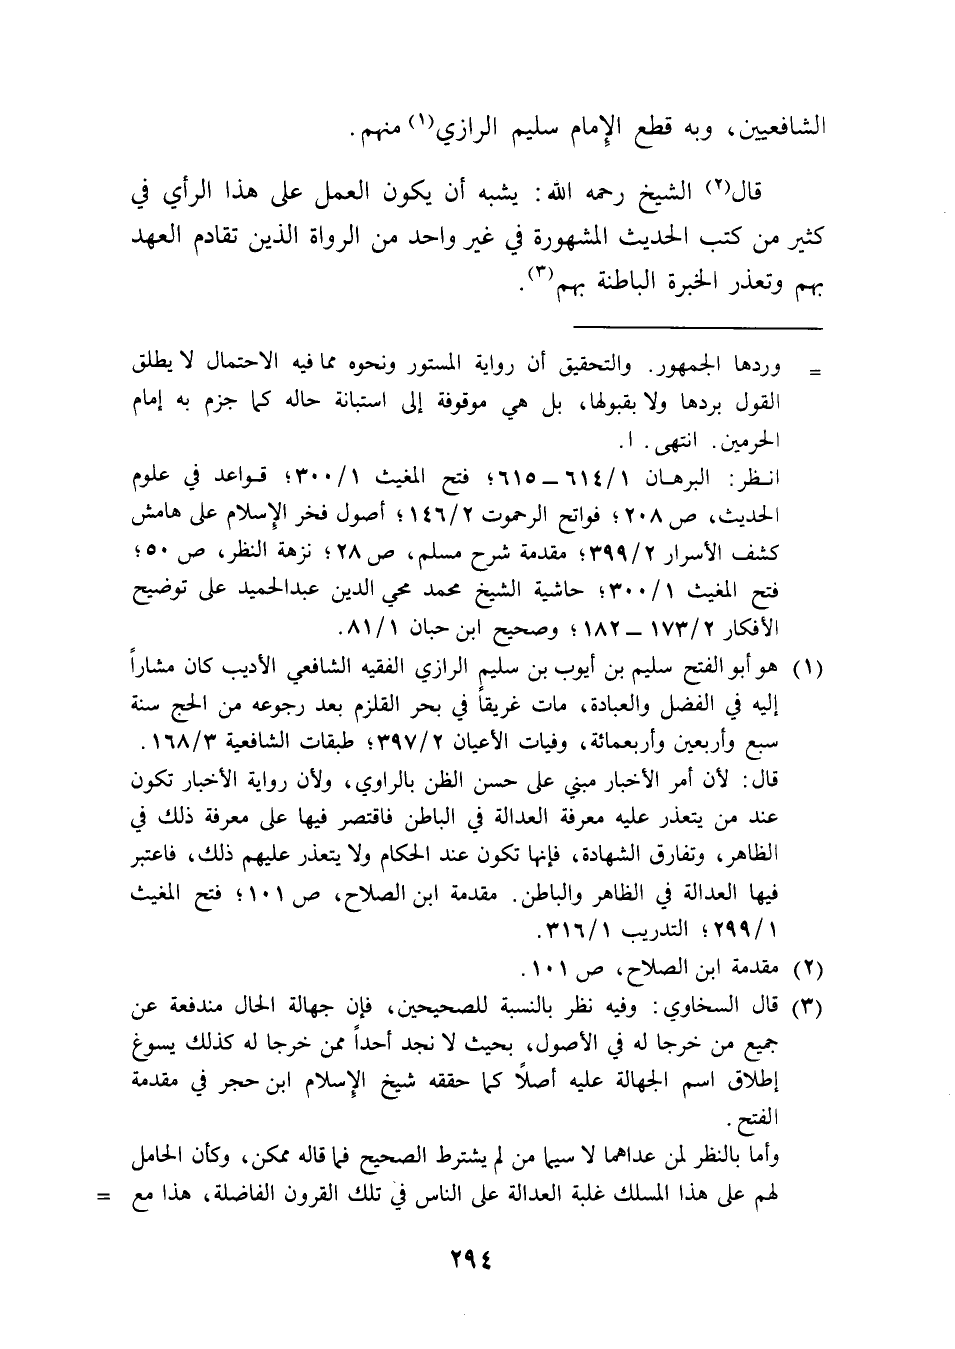 الشافعيين، وبه قطع الإمام سليم الرازي(١) منهم.
قال(٢) الشيخ رحمه الله: يشبه أن يكون العمل على هذا الرأي في
كثير من كتب الحديث المشهورة في غير واحد من الرواة الذين تقادم العهد
بهم وتعذر الخبرة الباطنة بهم(٣).
= وردها الجمهور. والتحقيق أن رواية المستور ونحوه مما فيه الاحتمال لا يطلق
القول بردها ولا بقبولها، بل هي موقوفة إلى استبانة حاله كما جزم به إمام
الحرمين. انتهى. ا.
انـظر: البرهـان ٦١٤/١ ــ ٦١٥؛ فتح المغيث ٣٠٠/١؛ قـواعد في علوم
الحديث، ص ٢٠٨؛ فواتح الرحموت ١٤٦/٢؛ أصول فخر الإسلام على هامش
كشف الأسرار ٣٩٩/٢؛ مقدمة شرح مسلم، ص ٢٨؛ نزهة النظر، ص ٥٠؛
فتح المغيث ٣٠٠/١؛ حاشية الشيخ محمد محي الدين عبدالحميد على توضيح
الأفكار ١٧٣/٢ ــ ١٨٢؛ وصحيح ابن حبان ٨١/١.
(١) هو أبو الفتح سليم بن أيوب بن سليم الرازي الفقيه الشافعي الأديب كان مشاراً
إليه في الفضل والعبادة، مات غريقاً في بحر القلزم بعد رجوعه من الحج سنة
سبع وأربعين وأربعمائة، وفيات الأعيان ٣٩٧/٢؛ طبقات الشافعية ١٦٨/٣.
قال: لأن أمر الأخبار مبني على حسن الظن بالراوي، ولأن رواية الأخبار تكون
عند من يتعذر عليه معرفة العدالة في الباطن فاقتصر فيها على معرفة ذلك في
الظاهر، وتفارق الشهادة، فإنها تكون عند الحكام ولا يتعذر عليهم ذلك، فاعتبر
فيها العدالة في الظاهر والباطن. مقدمة ابن الصلاح، ص ١٠١؛ فتح المغيث
٢٩٩/١؛ التدريب ٣١٦/١.
(٢) مقدمة ابن الصلاح، ص ١٠١.
(٣) قال السخاوي: وفيه نظر بالنسبة للصحيحين، فإن جهالة الحال مندفعة عن
جميع من خرجا له في الأصول، بحيث لا نجد أحداً ممن خرجا له كذلك يسوغ
إطلاق اسم الجهالة عليه أصلاً كما حققه شيخ الإسلام ابن حجر في مقدمة
الفتح.
وأما بالنظر لمن عداهما لا سيما من لم يشترط الصحيح فما قاله ممكن، وكأن الحامل
لهم على هذا المسلك غلبة العدالة على الناس في تلك القرون الفاضلة، هذا مع =
٢٩٤